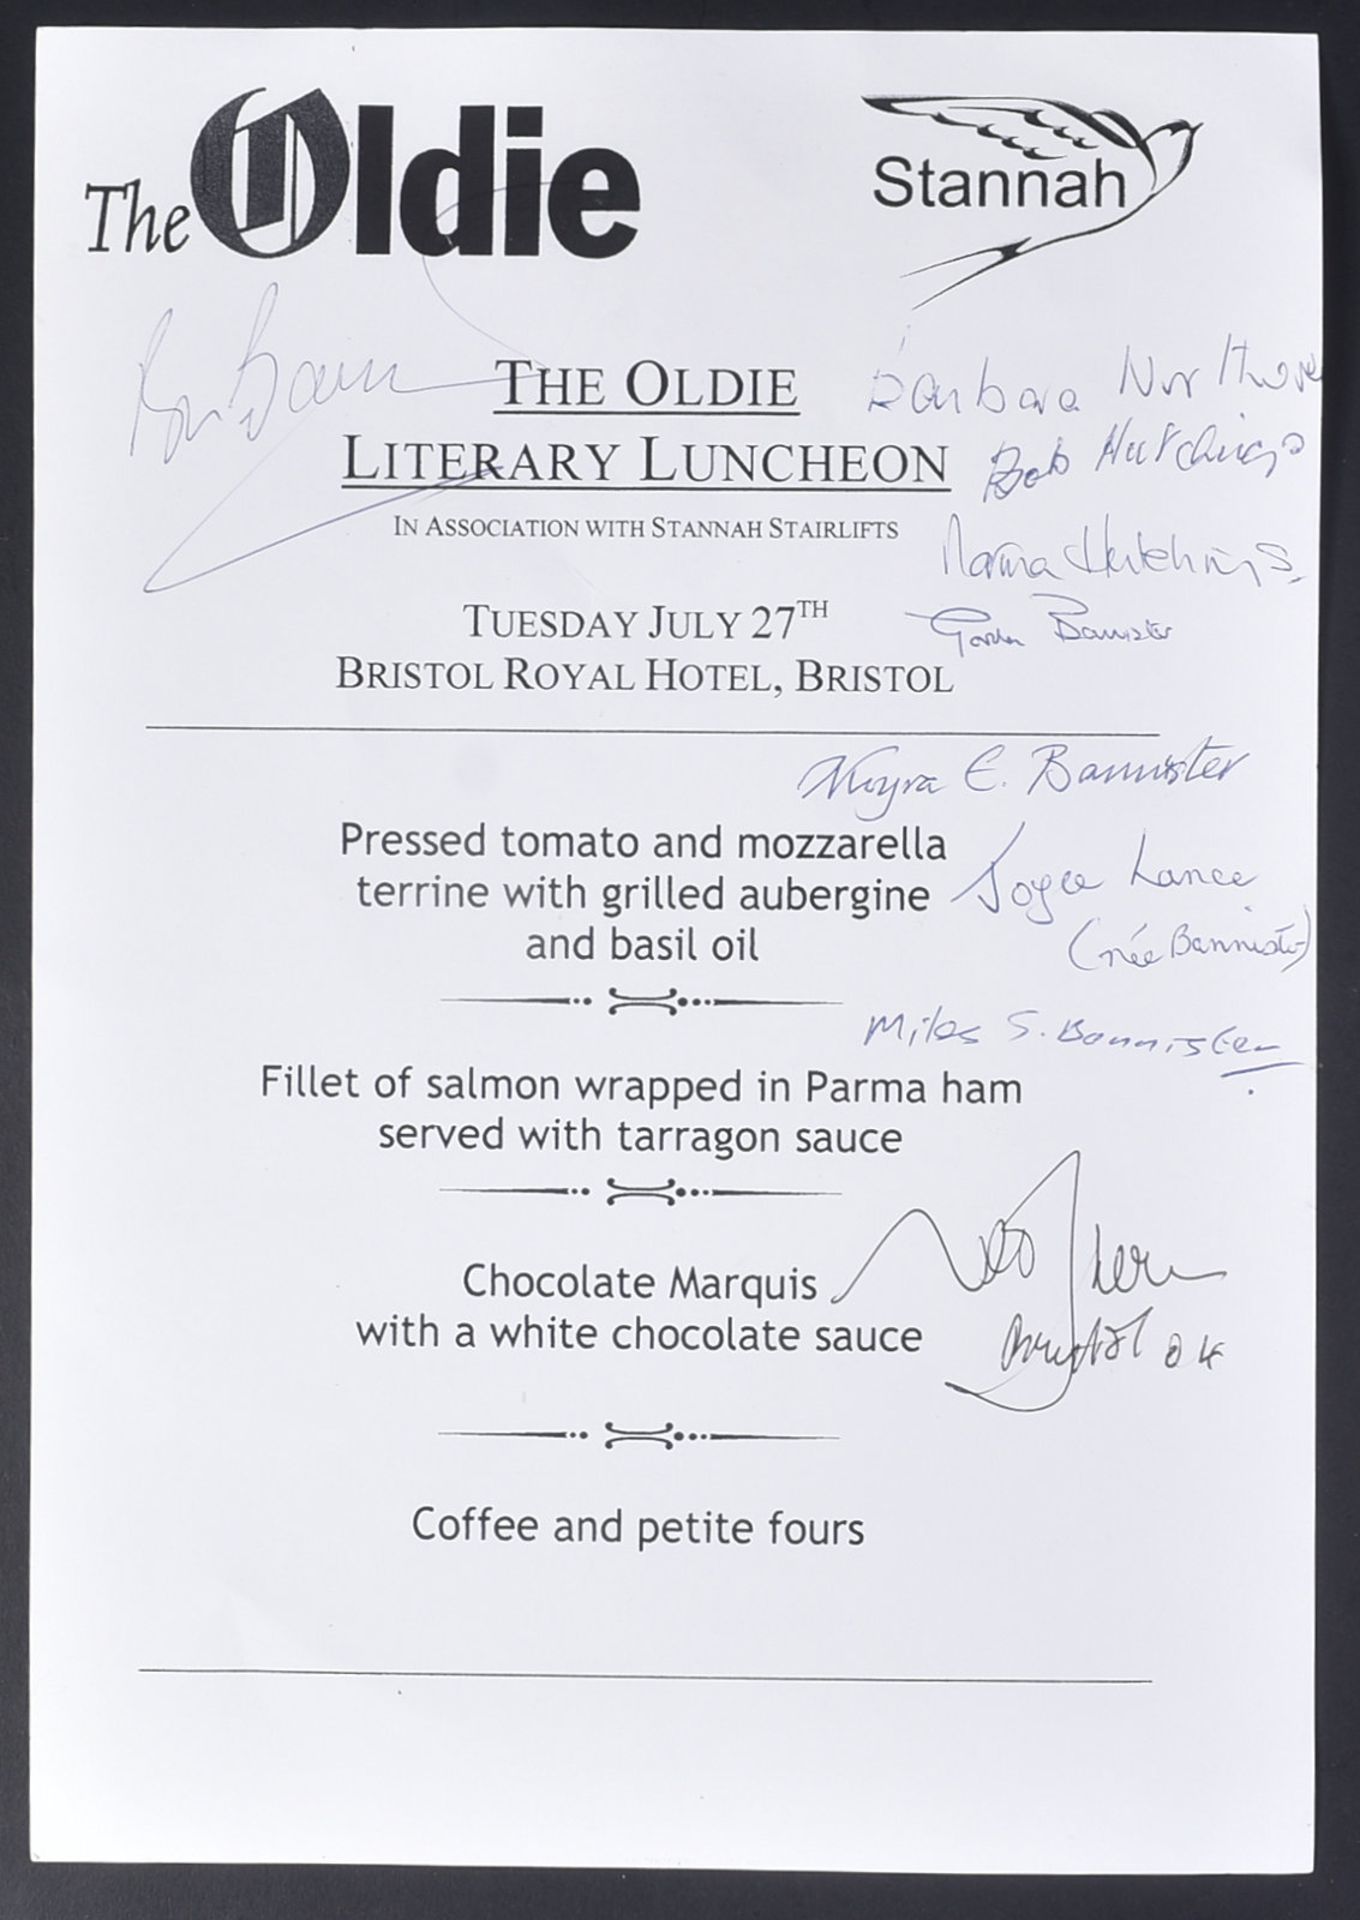 The Oldie
Stannah
THE OLDIE
LITERARY LUNCHEON
IN ASSOCIATION WITH STANNAH STAIRLIFTS
TUESDAY JULY 27TH
BRISTOL ROYAL HOTEL, BRISTOL
Barbara
Bob Hutchings
Norma Hutchings.
Gordon Bannister
Moyra E. Bannister
Pressed tomato and mozzarella
terrine with grilled aubergine
and basil oil
Joyce Lance
(née Bannister)
Miles S. Bannister
Fillet of salmon wrapped in Parma ham
served with tarragon sauce
Chocolate Marquis
with a white chocolate sauce
Bristol 04
Coffee and petite fours